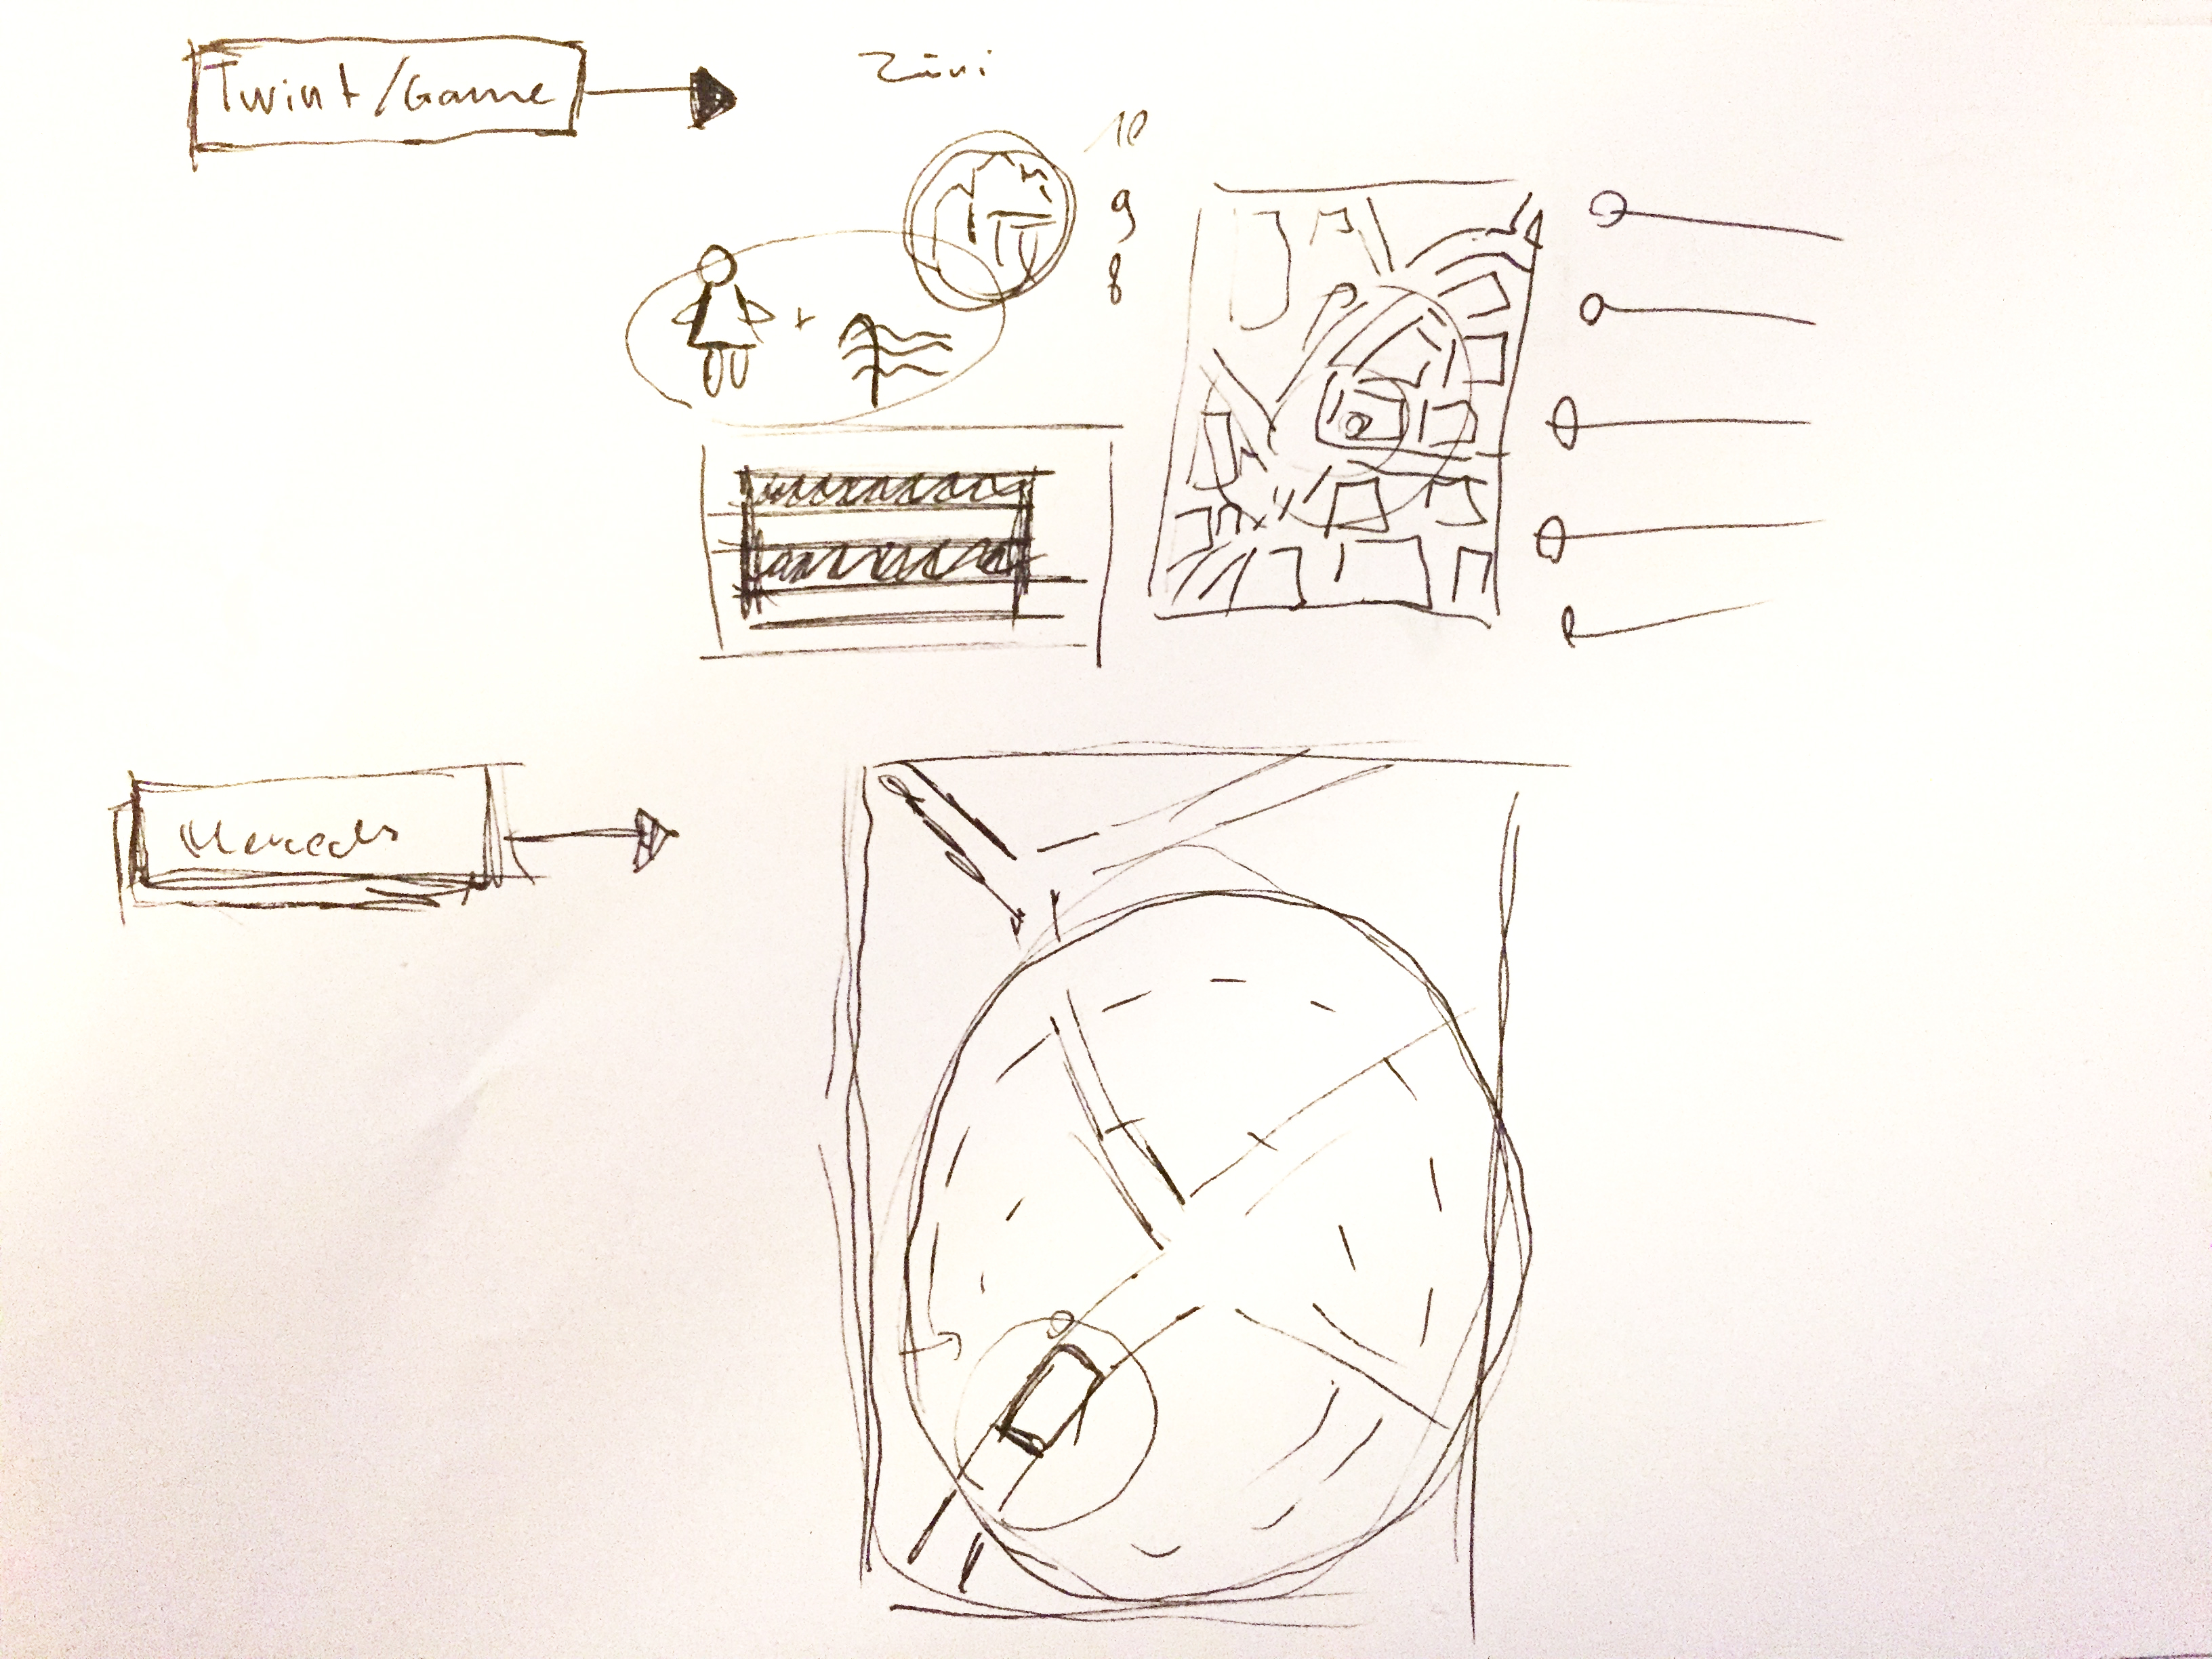 Twint/Game
Züri
10
9
8
Mercedes